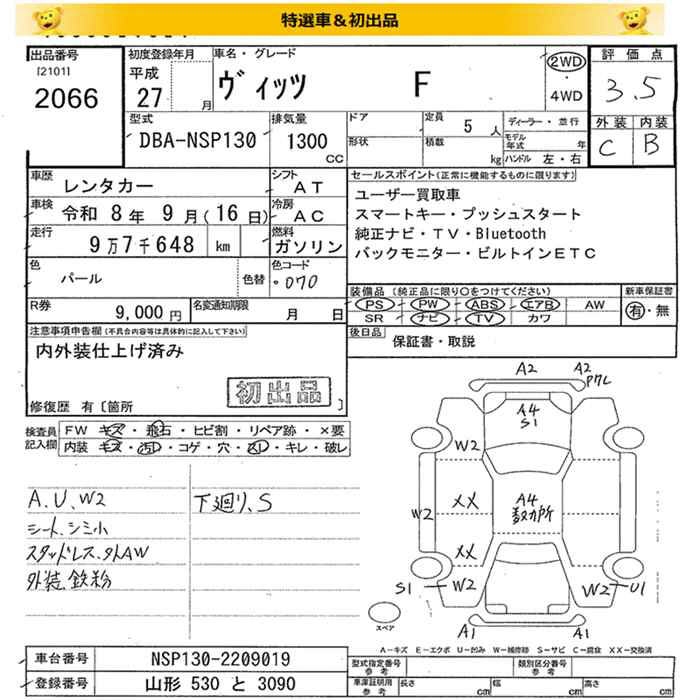 特選車＆初出品
出品番号
[2101]
2066
初度登録年月
平成
27 月
車名・グレード
ヴィッツ F
2WD
・
4WD
評価点
3.5
外装 内装
C B
型式
DBA-NSP130
排気量
1300
CC
ドア
形状
定員
5 人
積載
kg
ディーラー・並行
モデル
年式 年
ハンドル 左・右
車歴
レンタカー
シフト
AT
車検
令和 8年 9月(16日)
冷房
AC
走行
9万7千648 km
燃料
ガソリン
色
パール
色替
色コード
・070
R券
9,000 円
名変通知期限
月 日
セールスポイント(正常に機能するものに限ります)
ユーザー買取車
スマートキー・プッシュスタート
純正ナビ・TV・Bluetooth
バックモニター・ビルトインETC
装備品 (純正品に限り○をつけてください)
PS PW ABS エアB AW
SR ナビ TV カワ
新車保証書
有・無
後日品
保証書・取説
注意事項申告欄(不具合内容等は具体的に記入して下さい)
内外装仕上げ済み
初出品
修復歴 有〔箇所 〕
検査員
記入欄
FW キズ・飛石・ヒビ割・リペア跡・×要
内装 キズ・汚れ・コゲ・穴・スレ・キレ・破レ
A.U.W2
シート.シミ小
スタッドレス.外AW
外装.鉄粉
下廻り.S
A2
A2
A4
S1
W2
W2
XX
XX
A4
数カ所
W2
S1
W2
U1
A1
A1
スペア
A−キズ E−エクボ U−凹み W−補修跡 S−サビ C−腐食 XX−交換済
車台番号
NSP130-2209019
登録番号
山形 530 と 3090
型式指定番号
参考
類別区分番号
参考
車庫証明用
参考
長さ cm
幅 cm
高さ cm